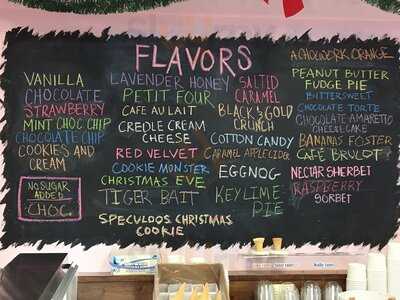 FLAVORS
VANILLA
CHOCOLATE
STRAWBERRY
MINT CHOC CHIP
CHOCOLATE CHIP
COOKIES AND
CREAM
NO SUGAR
ADDED
CHOC.
LAVENDER HONEY
PETIT FOUR
CAFE AU LAIT
CREOLE CREAM
CHEESE
RED VELVET
COOKIE MONSTER
CHRISTMAS EVE
TIGER BAIT
SPECULOOS CHRISTMAS
COOKIE
SALTED
CARAMEL
BLACK & GOLD
CRUNCH
COTTON CANDY
CARAMEL APPLE CIDER
EGGNOG
KEY LIME
PIE
A CHOCWORK ORANGE
PEANUT BUTTER
FUDGE PIE
BITTERSWEET
CHOCOLATE TORTE
CHOCOLATE AMARETTO
CHEESECAKE
BANANAS FOSTER
CAFÉ BRULOT
NECTAR SHERBET
RASPBERRY
SORBET